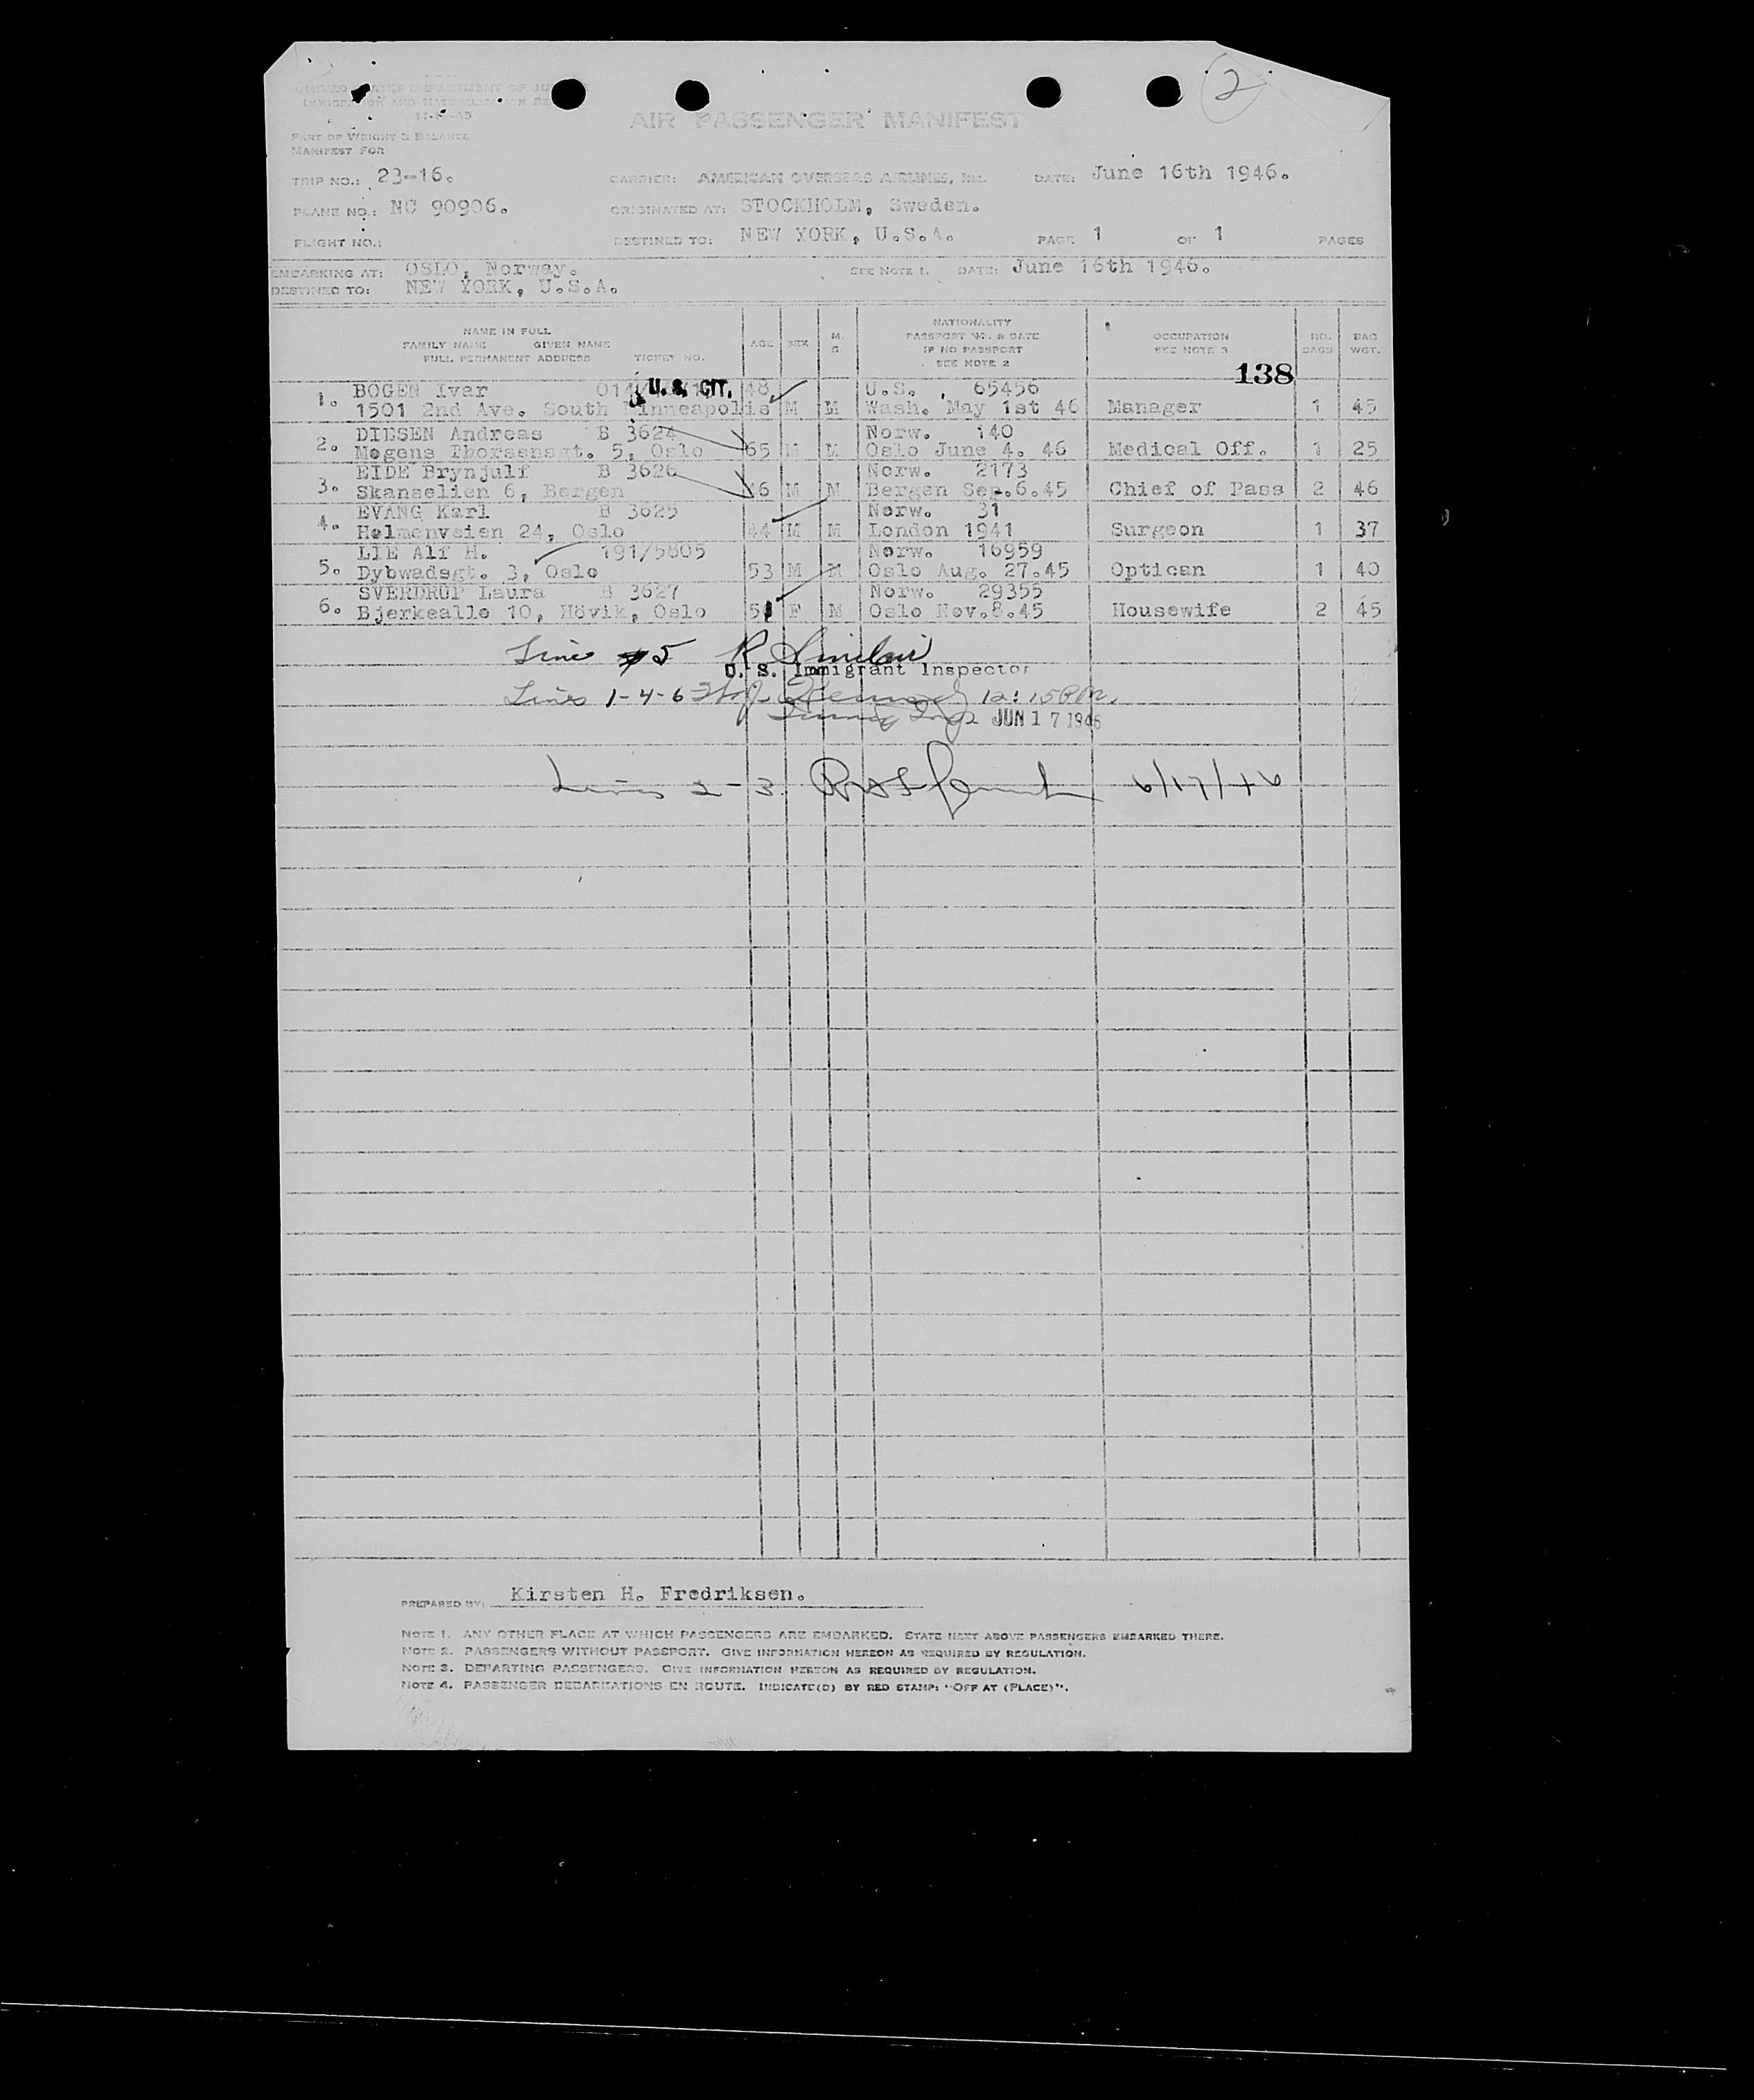 2
UNITED STATES DEPARTMENT OF JUSTICE
IMMIGRATION AND NATURALIZATION SE
AIR PASSENGER MANIFEST
PART OF WEIGHT & BALANCE
MANIFEST FOR
TRIP NO.: 23-16. CARRIER: AMERICAN OVERSEAS AIRLINES, INC. DATE: June 16th 1946.
PLANE NO.: NC 90906. ORIGINATED AT: STOCKHOLM, Sweden.
FLIGHT NO.: DESTINED TO: NEW YORK, U.S.A. PAGE 1 OF 1 PAGES
EMBARKING AT: OSLO, Norway. SEE NOTE 1. DATE: June 16th 1946.
DESTINED TO: NEW YORK, U.S.A.
NAME IN FULL
FAMILY NAME GIVEN NAME
FULL PERMANENT ADDRESS TICKET NO.
AGE SEX M. S.
NATIONALITY
PASSPORT NO. & DATE
IF NO PASSPORT
SEE NOTE 2
OCCUPATION
SEE NOTE 3
NO. BAGS
BAG WGT.
138
1. BOGEN Ivar U.S. CIT. 48 U.S. , 65456
1501 2nd Ave. South Minneapolis M M Wash. May 1st 46 Manager 1 45
2. DIESEN Andreas B 3624 Norw. 140
Mogens Thorsensgt. 5, Oslo 65 M M Oslo June 4. 46 Medical Off. 1 25
3. EIDE Brynjulf B 3626 Norw. 2173
Skanselien 6, Bergen 46 M M Bergen Sep.6.45 Chief of Pass 2 46
4. EVANG Karl B 3625 Norw. 31
Holmenveien 24, Oslo 44 M M London 1941 Surgeon 1 37
5. LIE Alf H. 191/5805 Norw. 16959
Dybwadsgt. 3, Oslo 53 M M Oslo Aug. 27.45 Optican 1 40
6. SVERDRUP Laura B 3627 Norw. 29355
Bjerkealle 10, Hövik, Oslo F M Oslo Nov.8.45 Housewife 2 45
Line #5 R Sinclair
U. S. Immigrant Inspector
Lines 1-4-6 12:15 P.M.
JUN 17 1946
Lines 2-3. 6/17/46
PREPARED BY: Kirsten H. Fredriksen.
NOTE 1. ANY OTHER PLACE AT WHICH PASSENGERS ARE EMBARKED. STATE NEXT ABOVE PASSENGERS EMBARKED THERE.
NOTE 2. PASSENGERS WITHOUT PASSPORT. GIVE INFORMATION HEREON AS REQUIRED BY REGULATION.
NOTE 3. DEPARTING PASSENGERS. GIVE INFORMATION HEREON AS REQUIRED BY REGULATION.
NOTE 4. PASSENGER DEBARKATIONS EN ROUTE. INDICATE(D) BY RED STAMP: "OFF AT (PLACE)".